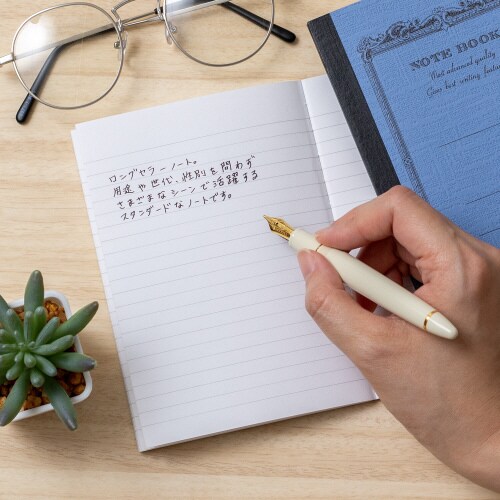 ロングセラーノート。
用途や世代、性別を問わず
さまざまなシーンで活躍する
スタンダードなノートです。
NOTE BOOK
Most advanced quality
Gives best writing features